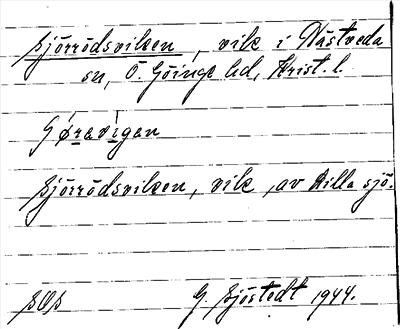 Sjörrödsviken, vik i Nästveda
sn, Ö. Göinge hd, Krist. l.
Gǿravi̇gan
Sjörrödsviken, vik, av Hilla sjö.
G. Sjöstedt 1944.